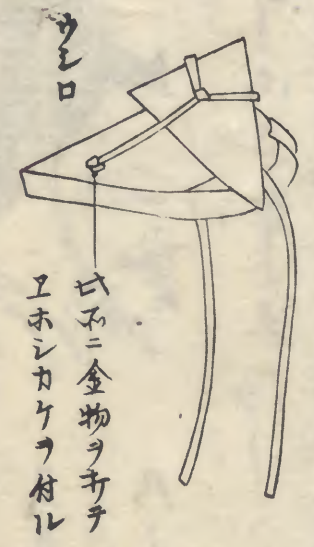 ウシロ
此所ニ金物ヲ打テ
ヱホシカケヲ付ル